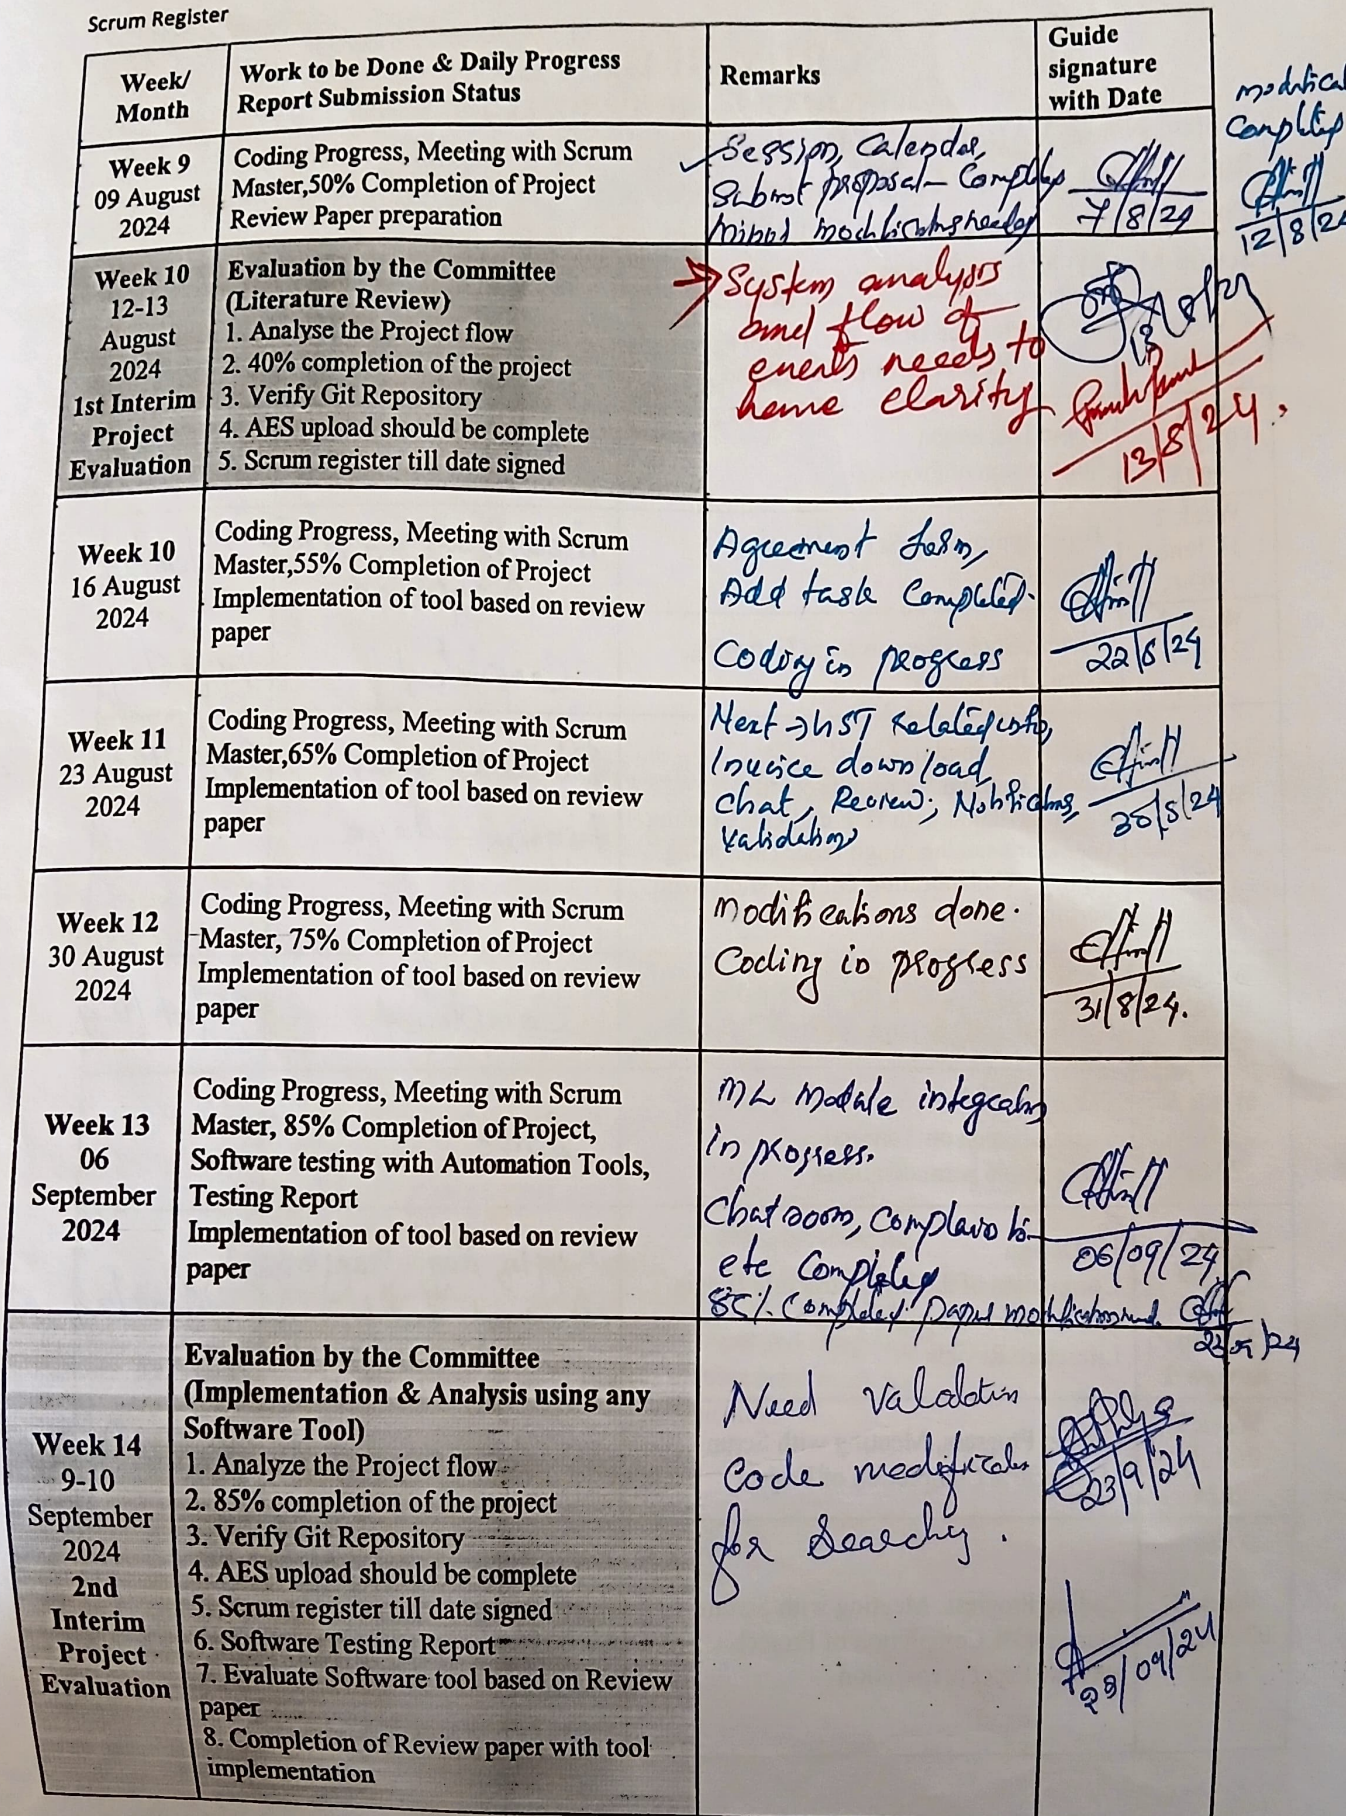 Scrum Register
Week/
Month
Work to be Done & Daily Progress
Report Submission Status
Remarks
Guide
signature
with Date
Week 9
09 August
2024
Coding Progress, Meeting with Scrum
Master,50% Completion of Project
Review Paper preparation
Session, Calendar,
Submit proposal – Completed
Minor modifications needed
7/8/24
12/8/24
Week 10
12-13
August
2024
1st Interim
Project
Evaluation
Evaluation by the Committee
(Literature Review)
1. Analyse the Project flow
2. 40% completion of the project
3. Verify Git Repository
4. AES upload should be complete
5. Scrum register till date signed
System analysis
and flow of
events needs to
have clarity
13/8/24.
Week 10
16 August
2024
Coding Progress, Meeting with Scrum
Master,55% Completion of Project
Implementation of tool based on review
paper
Agreement form,
Add task Completed.
Coding in progress
22/8/24
Week 11
23 August
2024
Coding Progress, Meeting with Scrum
Master,65% Completion of Project
Implementation of tool based on review
paper
Next → Related
Invoice download,
Chat, Review, Notifications,
Validations
Week 12
30 August
2024
Coding Progress, Meeting with Scrum
Master, 75% Completion of Project
Implementation of tool based on review
paper
Modifications done.
Coding in progress
31/8/24.
Week 13
06
September
2024
Coding Progress, Meeting with Scrum
Master, 85% Completion of Project,
Software testing with Automation Tools,
Testing Report
Implementation of tool based on review
paper
ML Module integration
in progress.
Chat room,
etc Completed
06/09/24
85% Completed.
Week 14
9-10
September
2024
2nd
Interim
Project
Evaluation
Evaluation by the Committee
(Implementation & Analysis using any
Software Tool)
1. Analyze the Project flow
2. 85% completion of the project
3. Verify Git Repository
4. AES upload should be complete
5. Scrum register till date signed
6. Software Testing Report
7. Evaluate Software tool based on Review
paper
8. Completion of Review paper with tool
implementation
Need Validation
Code
for Searching.
23/9/24